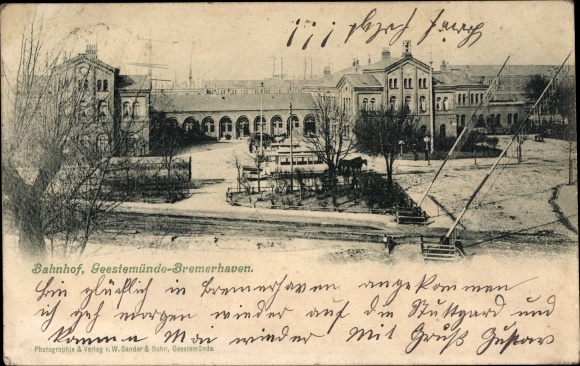 Bahnhof, Geestemünde-Bremerhaven.
Bin glücklich in Bremerhaven angekommen
ich geh morgen wieder auf den Stuttgard und
komme Mai wieder Mit Gruß Gustav
Photographie & Verlag v. W. Sander & Sohn, Geestemünde.